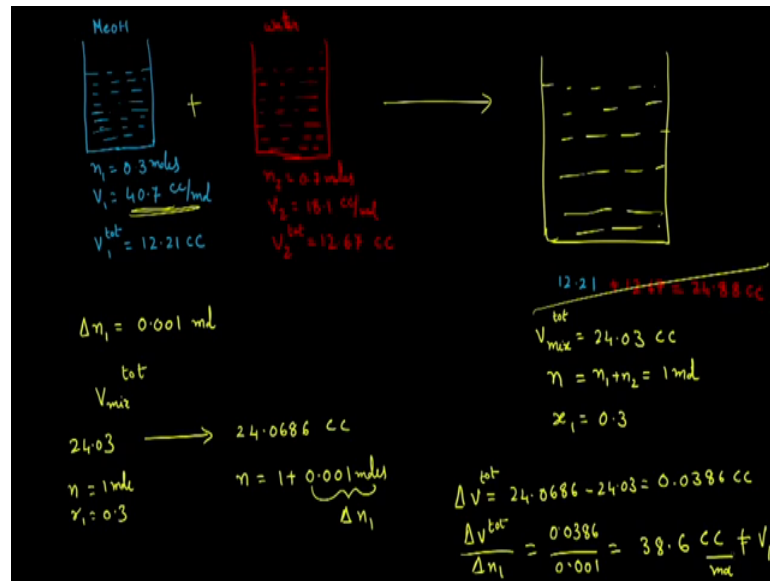 MeOH
water
+
n₁ = 0.3 moles
V₁ = 40.7 cc/mol
V₁ᵗᵒᵗ = 12.21 CC
n₂ = 0.7 moles
V₂ = 18.1 cc/mol
V₂ᵗᵒᵗ = 12.67 CC
12.21 + 12.67 = 24.88 CC
Vₘᵢₓᵗᵒᵗ = 24.03 CC
n = n₁+n₂ = 1 mol
x₁ = 0.3
Δn₁ = 0.001 mol
Vₘᵢₓᵗᵒᵗ
24.03 → 24.0686 CC
n = 1 mole
x₁ = 0.3
n = 1 + 0.001 moles
Δn₁
ΔVᵗᵒᵗ = 24.0686 - 24.03 = 0.0386 CC
ΔVᵗᵒᵗ/Δn₁ = 0.0386/0.001 = 38.6 CC/mol ≠ V₁